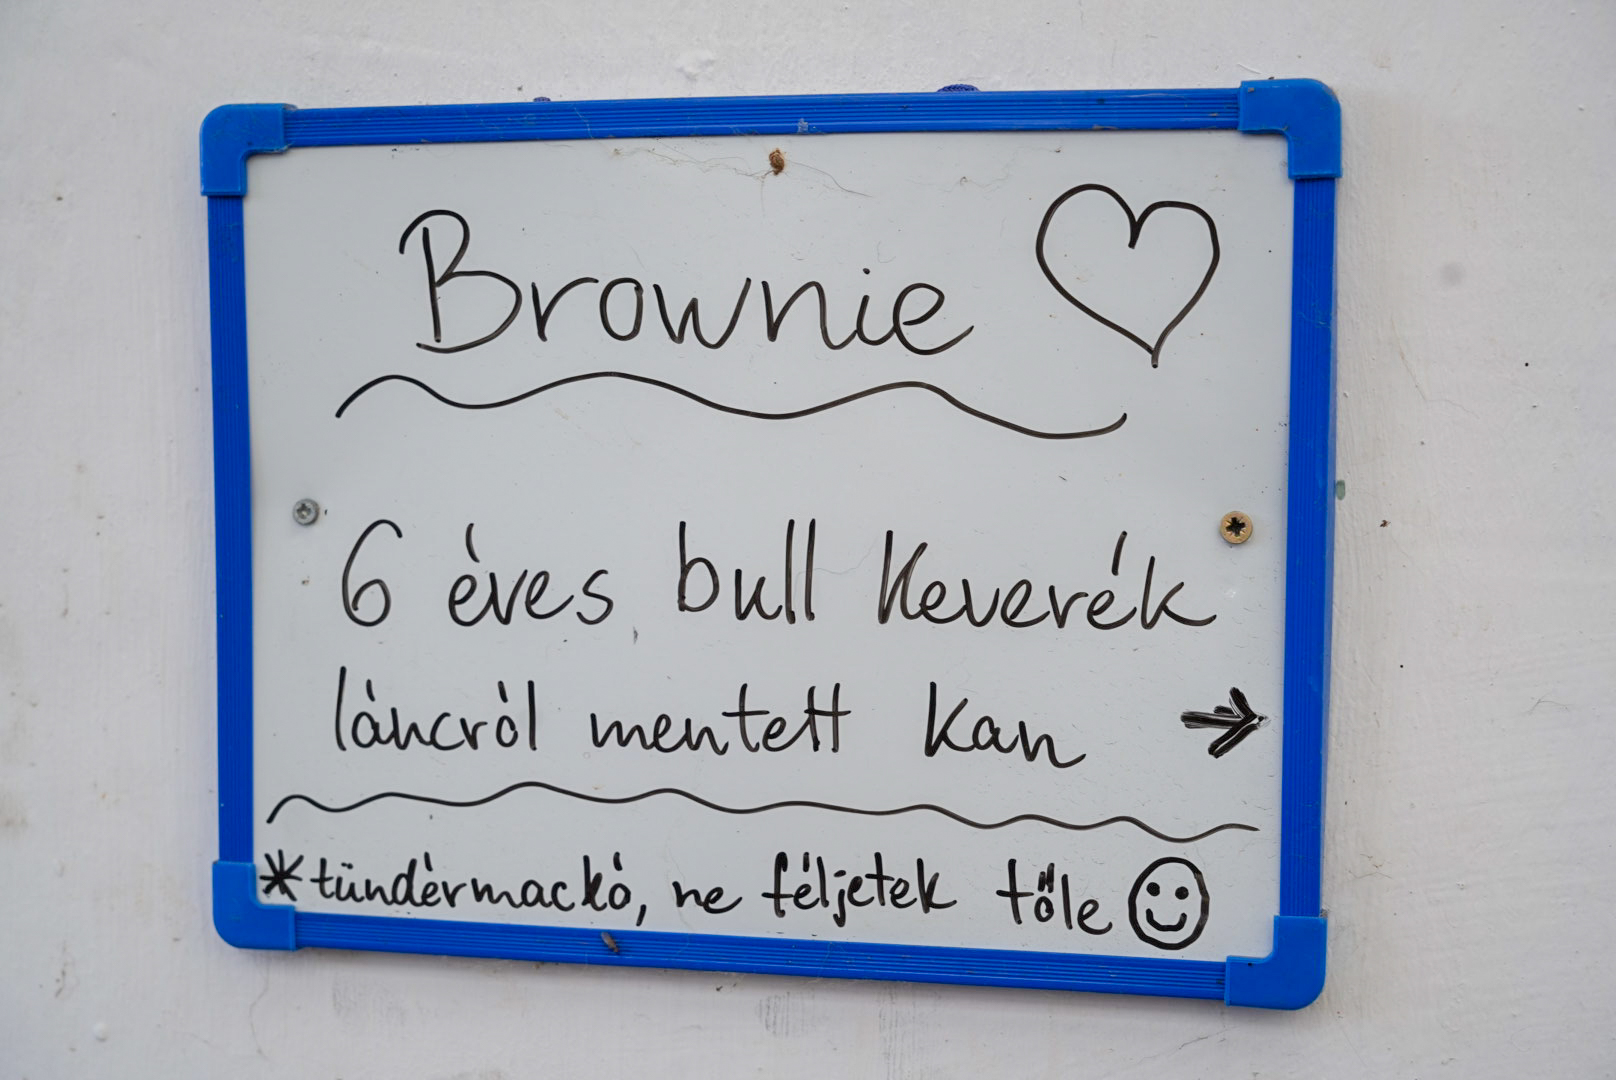 Brownie ♡
6 éves bull keverék
láncról mentett kan →
*tündérmackó, ne féljetek tőle ☺